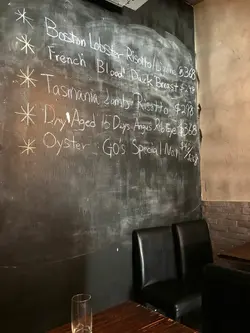 Boston Lobster Risotto
French Blood Duck Breast
Tasmania Lamb Risotto $298
Dry Aged 16 Days Angus Rib Eye
Oyster GO's Special